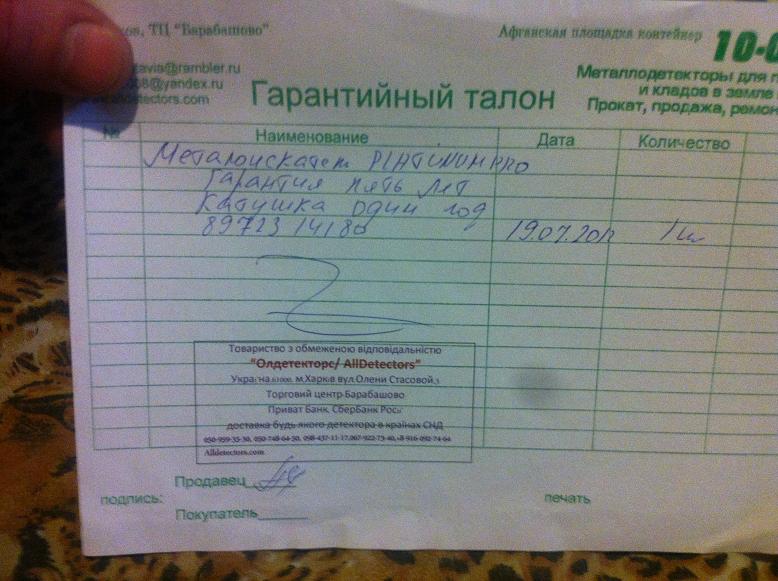 ков, ТЦ "Барабашово"
Афганская площадка контейнер 10-0
avia@rambler.ru
08@yandex.ru
alldetectors.com
Металлодетекторы для
и кладов в земле
Прокат, продажа, ремон
Гарантийный талон
№ Наименование Дата Количество
Металоискатель PLATINUM PRO
Гарантия пять лет
Катушка один год
19.07.201 1 ш
Товариство з обмеженою відповідальністю
"Олдетекторс/ AllDetectors"
Україна 61000, м.Харків вул.Олени Стасовой,3
Торговий центр Барабашово
Приват Банк, СберБанк Росії
доставка будь якого детектора в країнах СНД
050-959-35-30, 050-748-64-50, 098-437-11-17,067-922-73-40,+8-916-092-74-64
Alldetectors.com
Продавец
подпись:
печать
Покупатель